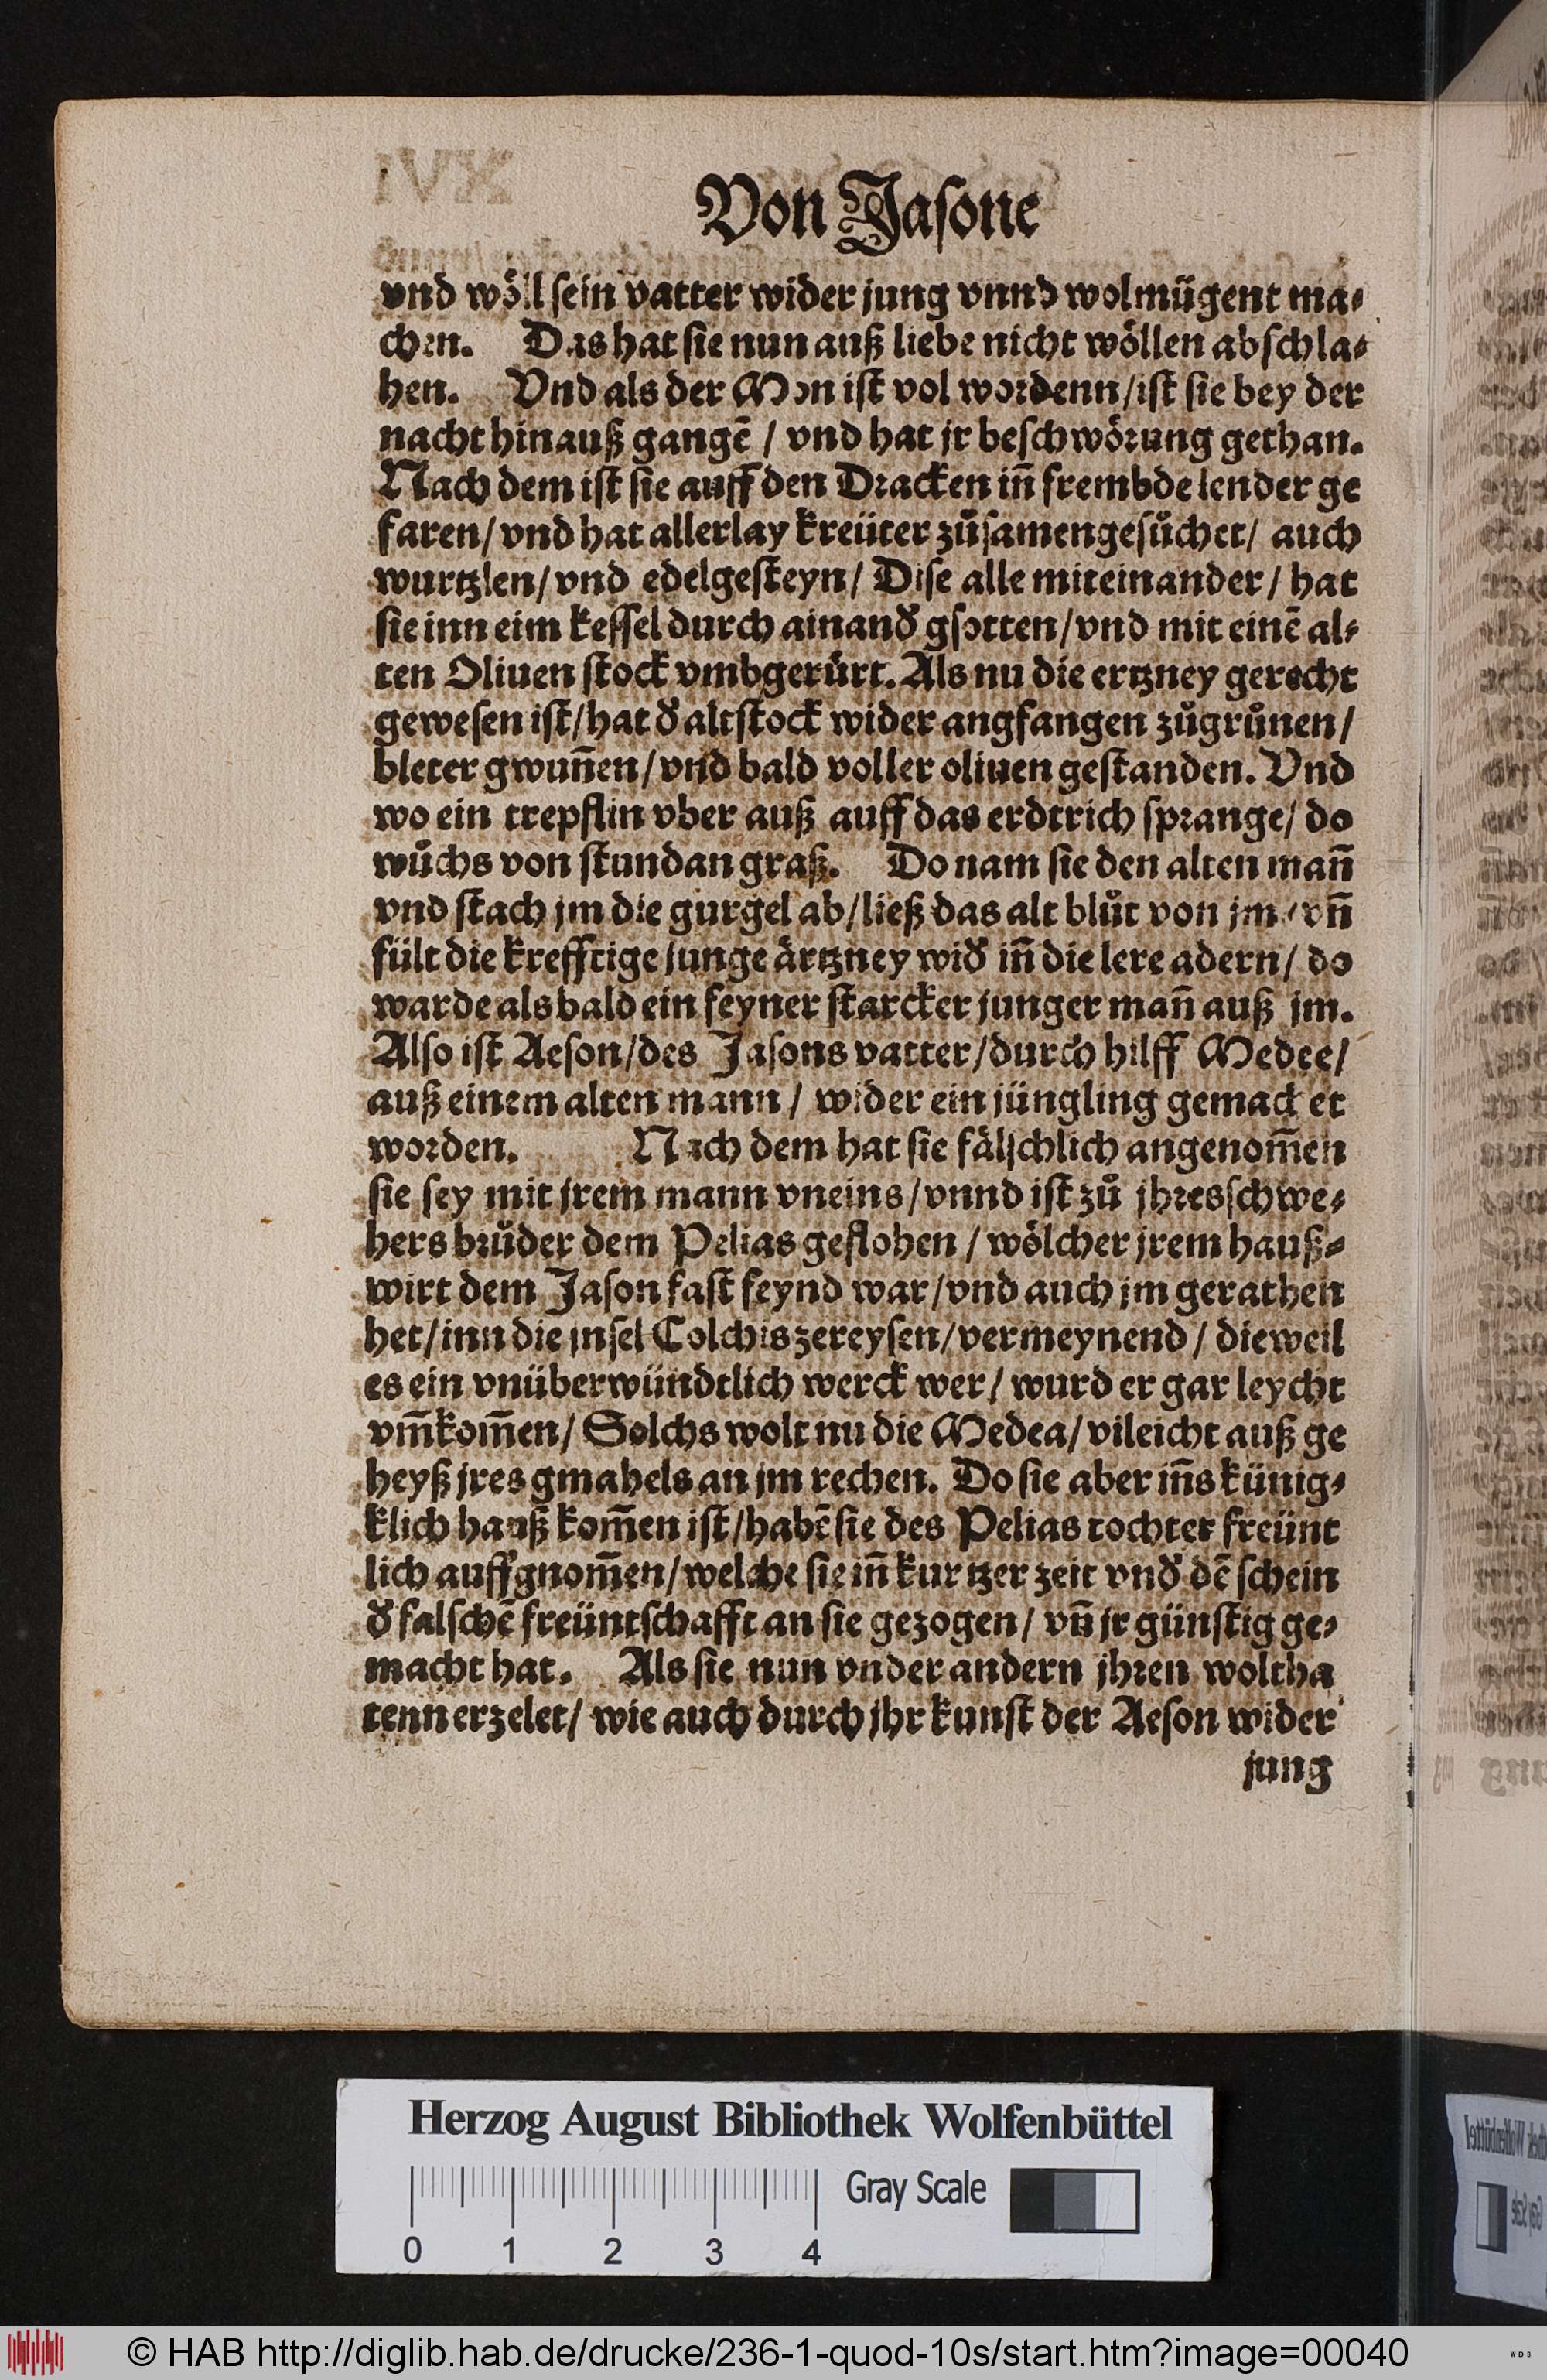 Von Jasone
vnd wöll sein vatter wider jung vnnd wolmügent ma⸗
chen. Das hat sie nun auß liebe nicht wöllen abschla⸗
hen. Vnd als der Mon ist vol wordenn/ist sie bey der
nacht hinauß gangē / vnd hat jr beschwörung gethan.
Nach dem ist sie auff den Dracken in̄ frembde lender ge
faren/vnd hat allerlay kreüter zůsamengesůchet/ auch
wurtzlen/vnd edelgesteyn/ Dise alle miteinander/ hat
sie inn eim kessel durch ainand̛ gsotten/vnd mit einē al⸗
ten Oliuen stock vmbgerürt. Als nu die ertzney gerecht
gewesen ist/hat d̛ altstock wider angfangen zůgrůnen/
bleter gwun̄en/vnd bald voller oliuen gestanden. Vnd
wo ein trepflin vber auß auff das erdtrich sprange/ do
wůchs von stundan graß. Do nam sie den alten man̄
vnd stach jm die gurgel ab/ließ das alt blůt von jm/vn̄
fült die krefftige junge ärtzney wid̛ in̄ die lere adern/ do
warde als bald ein feyner starcker junger man̄ auß jm.
Also ist Aeson/des Jasons vatter/durch hilff Medee/
auß einem alten mann/ wider ein jüngling gemacket
worden. Nach dem hat sie fälschlich angenom̄en
sie sey mit jrem mann vneins/vnnd ist zů jhresschwe⸗
hers brůder dem Pelias geflohen/ wölcher jrem hauß⸗
wirt dem Jason fast feynd war/vnd auch jm gerathen
het/inn die jnsel Colchis zereysen/vermeynend/ dieweil
es ein vnüberwündtlich werck wer/ wurd er gar leycht
vm̄kom̄en/ Solchs wolt nu die Medea/vileicht auß ge
heyß jres gmahels an jm rechen. Do sie aber in̄s künig⸗
klich hauß kom̄en ist/habē sie des Pelias tochter freünt
lich auffgnom̄en/welche sie in̄ kurtzer zeit vnd̛ dē schein
d̛ falschē freüntschafft an sie gezogen/ vn̄ jr günstig ge⸗
macht hat. Als sie nun vnder andern jhren woltha
tenn erzelet/ wie auch durch jhr kunst der Aeson wider
jung
Herzog August Bibliothek Wolfenbüttel
Gray Scale
0 1 2 3 4
© HAB http://diglib.hab.de/drucke/236-1-quod-10s/start.htm?image=00040